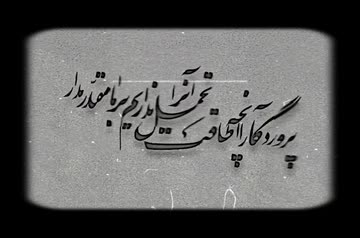 پروردگارا آنچه طاقت
تحمل آنرا نداریم بر ما مقدر مدار